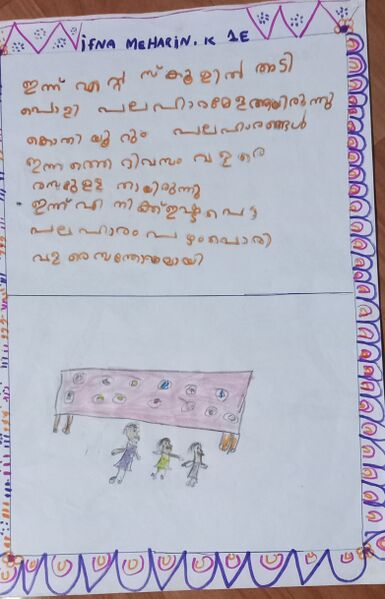 iFNA MEHARiN. K 1E
ഇന്ന് എന്റെ സ്കൂളിൽ അടി
പൊളി പലഹാരമേളആയിരുന്നു
കൊതിയൂറും പലഹാരങ്ങൾ
ഇന്നത്തെ ദിവസം വളരെ
രസമുള്ളതായിരുന്നു
ഇന്ന് എനിക്ക് ഇഷ്ടപെട്ട
പലഹാരം പഴംപൊരി
വളരെ സന്തോഷമായി